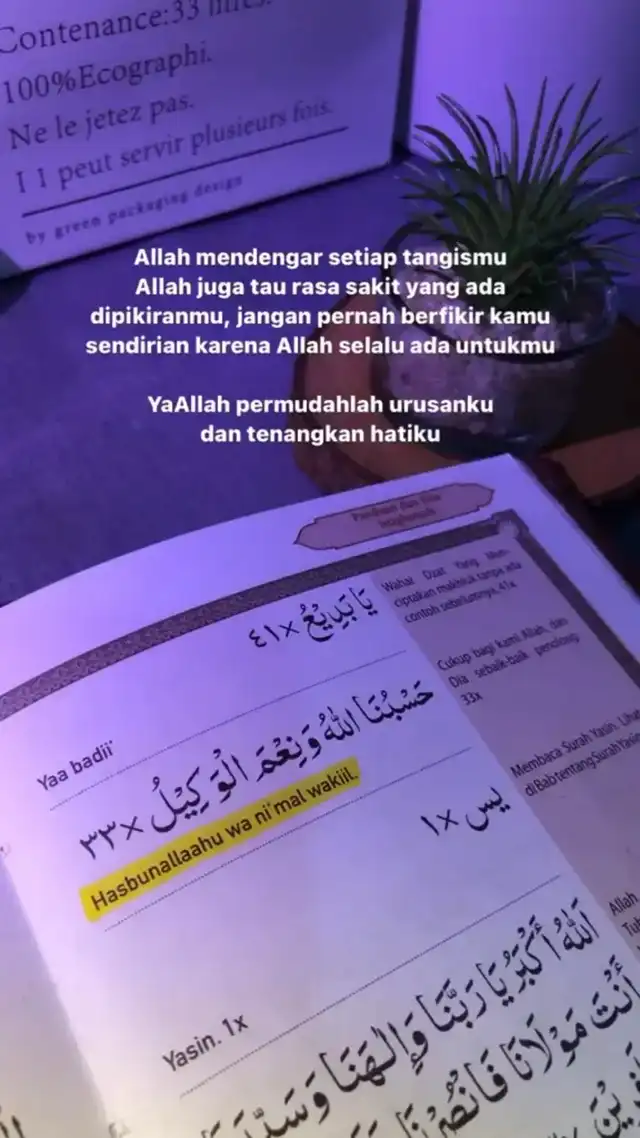 Contenance:33
100%Ecographi.
Ne le jetez pas.
I I peut servir plusieurs fois.
by green packaging design
Allah mendengar setiap tangismu
Allah juga tau rasa sakit yang ada
dipikiranmu, jangan pernah berfikir kamu
sendirian karena Allah selalu ada untukmu
YaAllah permudahlah urusanku
dan tenangkan hatiku
يَا بَدِيْعُ ×٤١
Yaa badii'
Wahai Dzat Yang Men-
ciptakan makhluk tanpa ada
contoh sebelumnya. 41x
حَسْبُنَا اللهُ وَنِعْمَ الْوَكِيْلُ ×٣٣
Hasbunallaahu wa ni'mal wakiil.
Cukup bagi kami Allah, dan
Dia sebaik-baik penolong.
33x
يس ×١
Yasin. 1x
Membaca Surah Yasin. Lihat
di Bab tentang Surah Yasin
اَللهُ أَكْبَرُ يَا رَبَّنَا وَإِلٰهَنَا
Allah
أَنْتَ مَوْلَانَا فَانْصُرْنَا